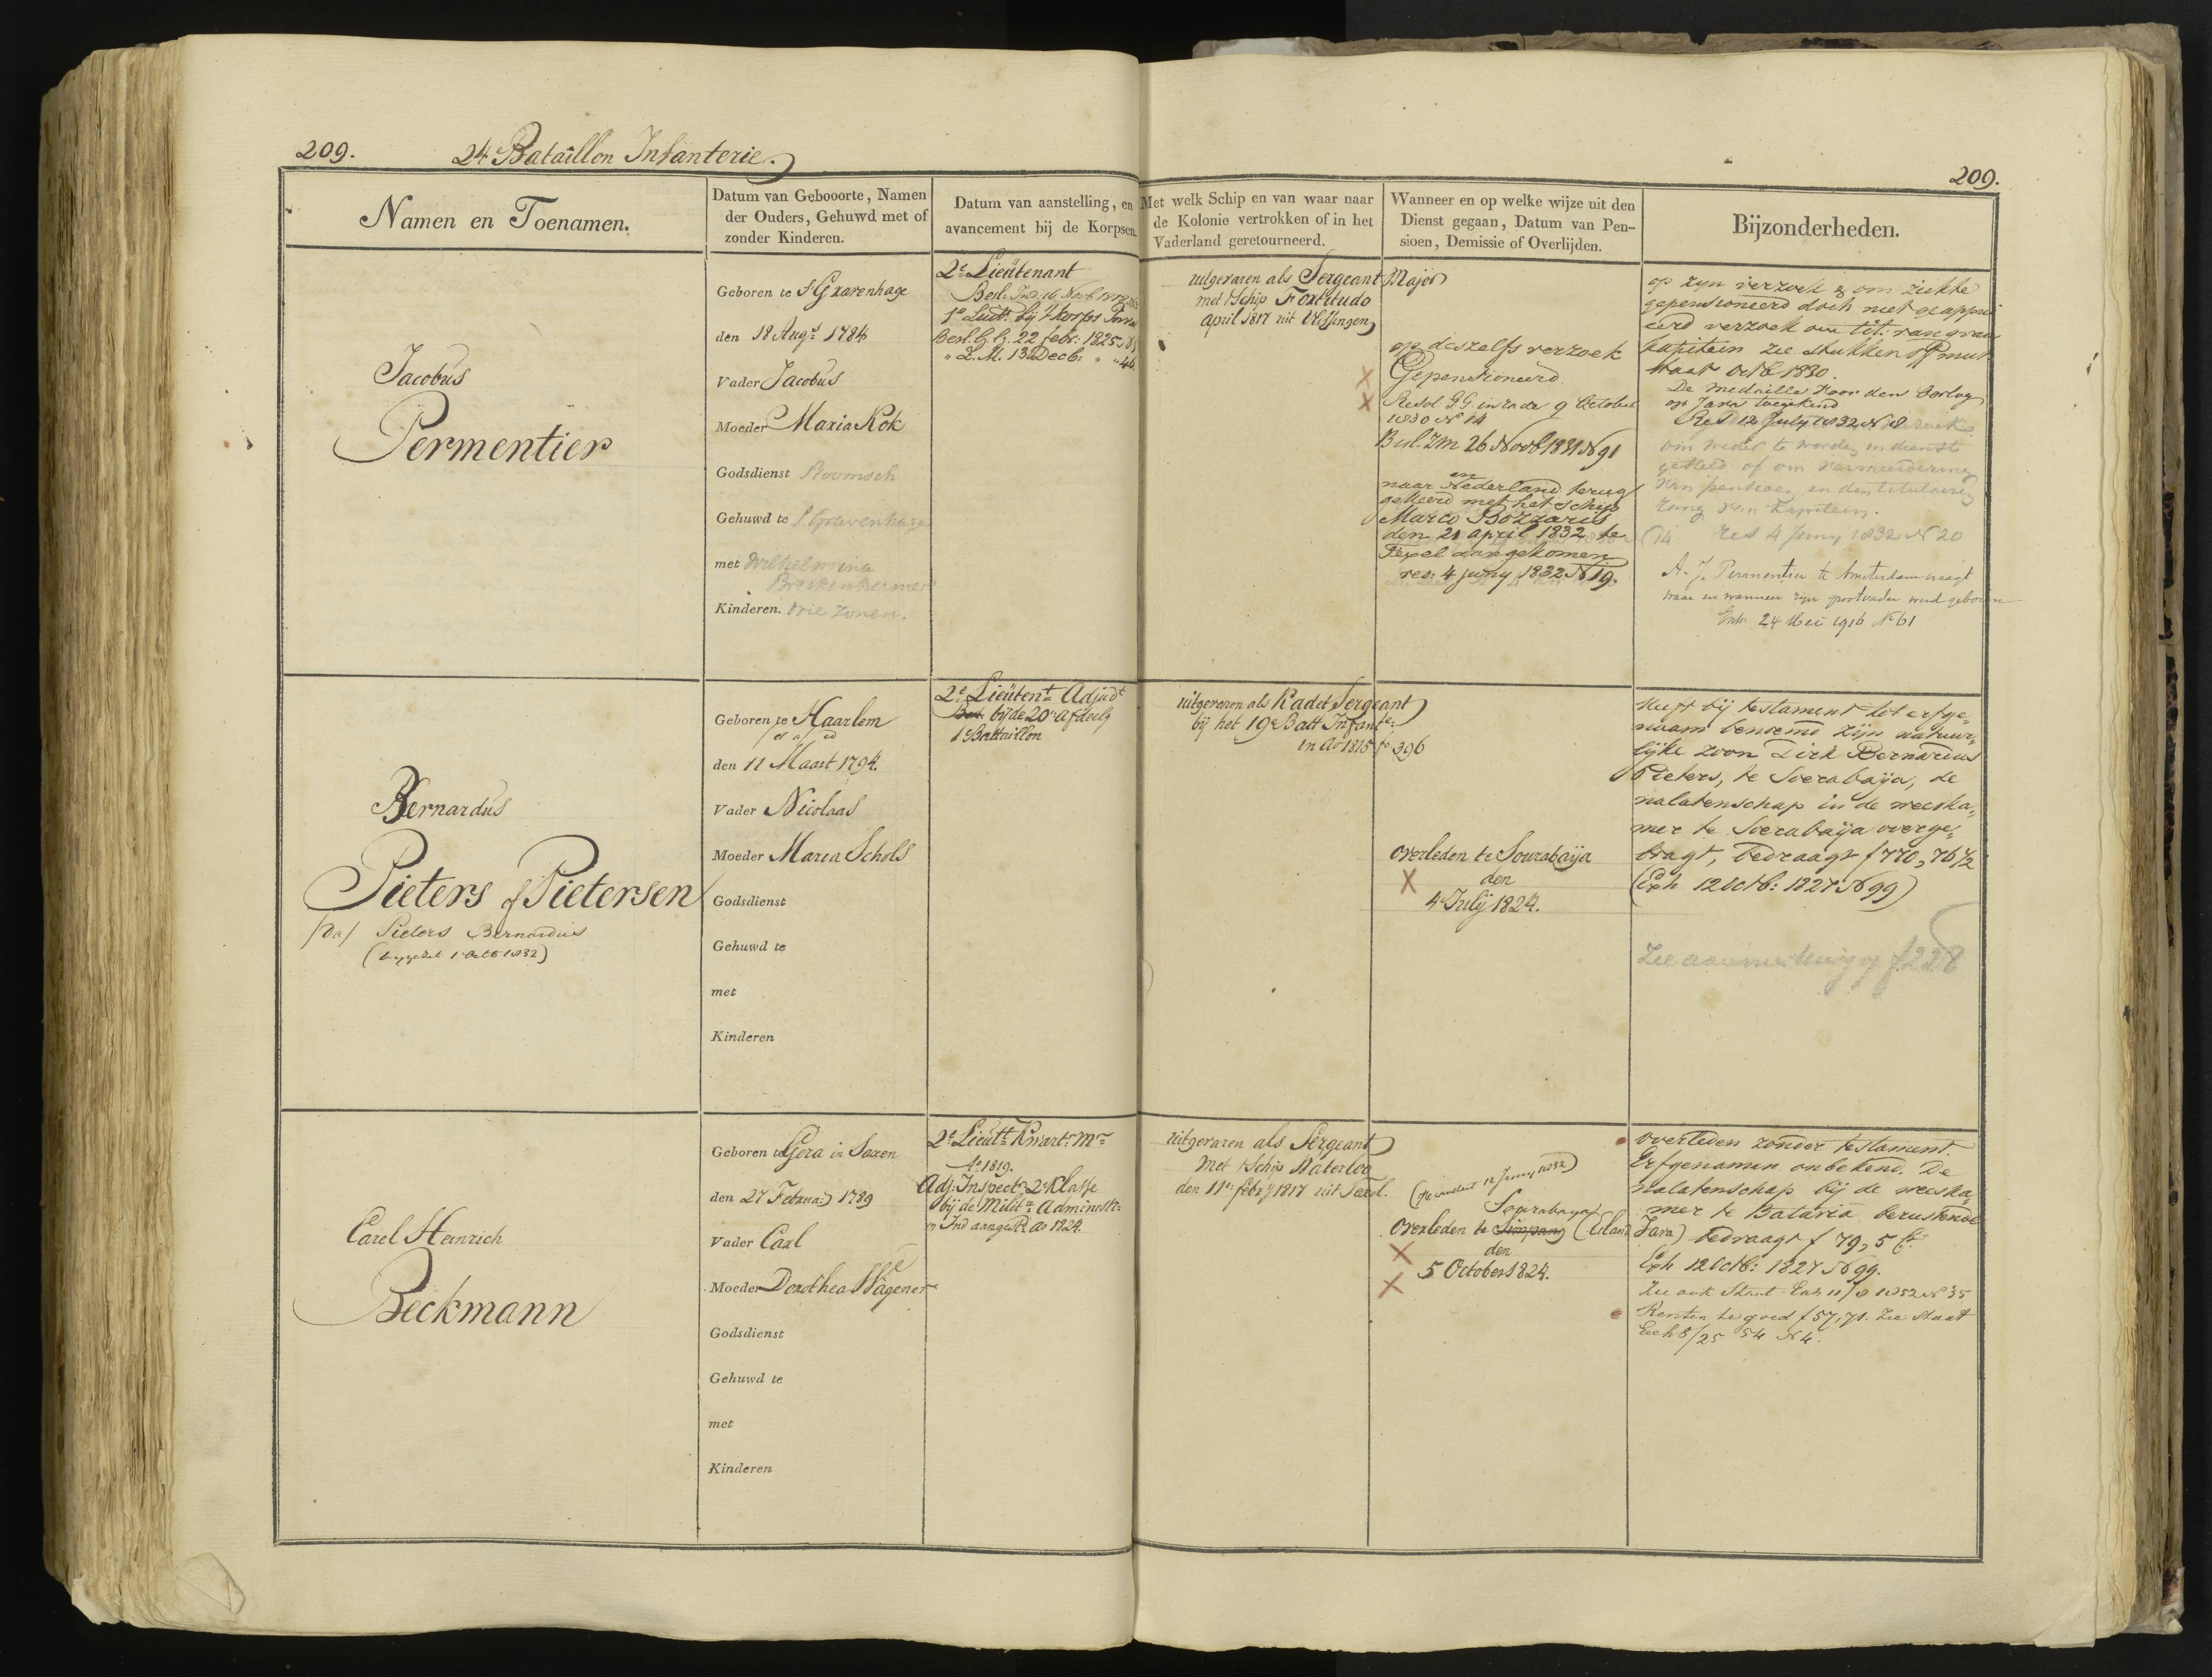 209.
24e Bataillon Infanterie.
209.
Namen en Toenamen.
Datum van Gebooorte, Namen
der Ouders, Gehuwd met of
zonder Kinderen.
Datum van aanstelling, en
avancement bij de Korpsen.
Met welk Schip en van waar naar
de Kolonie vertrokken of in het
Vaderland geretourneerd.
Wanneer en op welke wijze uit den
Dienst gegaan, Datum van Pen-
sioen, Demissie of Overlijden.
Bijzonderheden.
Jacobus
Permentier
Geboren te s'Gravenhage
den 18 Augt 1784
Vader Jacobus
Moeder Maria Kok
Godsdienst Roomsch
Gehuwd te s'Gravenhage
met Wilhelmina
Kinderen. drie zonen.
2e Lieutenant
Besl. Ind. 16 Novb.
1e Luit. bij 't korps
Besl. G. G. 22 febr: 1825
" L. M. 13 Decb: " " 46.
uitgevaren als Sergeant Major
met 't Schip Fortitudo
April 1817 uit Vlissingen
op deszelfs verzoek
Gepensioneerd
Resol. G.G. in rade 9 October
1830 No 14
Bul. Z.M. 26 Novb 1831 No 91
en
naar Nederland terug
gekeerd met het schip
Marco Bozzaris
den 21 april 1832 te
Texel aangekomen
res: 4 juny 1832 No 19.
op zyn verzoek & om ziekte
gepensioneerd doch niet geappui
eerd verzoek om tit: rang van
kapitein zie stukken
staat Octb 1830.
De medaille voor den Oorlog
op Java toegekend
Res 12 July 1832 No 8
om weder te worden in dienst
gesteld of om vermeerdering
van pensioen en den titulairen
rang van Kapitein.
Res 4 Juny 1832 No 20
A. J. Permentier te Amsterdam vraagt
waar en wanneer zijn grootvader werd geboren
Exh. 24 Mei 1916 No 61
Bernardus
Pieters of Pietersen
/Da/ Pieters Bernardus
Geboren te Haarlem
den 11 Maart 1794.
Vader Nicolaas
Moeder Maria Schols
Godsdienst
Gehuwd te
met
Kinderen
2e Lieutent Adjudt
bij de 20e afdeelg
1e Battaillon
uitgevaren als Kadet Sergeant
bij het 19e Batt Infante
in Ao 1815 fo 396
overleden te Sourabaija
den
4 Julij 1824.
Heeft bij testament tot erfge-
naam benoemd zijn natuur-
lijke zoon Dirk Bernardus
Pieters, te Soerabaija, de
nalatenschap in de weeska-
mer te Soerabaija overge-
bragt, bedraagt f 770,76½
(Exh 12 Octb: 1827 No 99)
Zie aanmerking op f 228
Carel Heinrich
Beckmann
Geboren te Gera in Saxen
den 27 Februa: 1789
Vader Carl
Moeder Dorothea Wagener
Godsdienst
Gehuwd te
met
Kinderen
2e Lieutt Kwartr Mr
Ao 1819.
Adj: Inspectr 2e Klasse
bij de Milite Administr:
in Ind aangest. Ao 1824.
uitgevaren als Sergeant
met 't Schip Waterloo
den 11e feb.y 1817 uit Texel.
Sourabaya
Overleden te Simpang (Eiland Java)
den
5 October 1824.
overleden zonder testament.
Erfgenamen onbekend. De
nalatenschap bij de weeska-
mer te Batavia berustende
bedraagt f 79,5
Exh 12 Octb: 1827 No 99.
Zie ook Staat Exh 11/8 1852 No 35
Renten te goed f 57,71. Zie Staat
Exh 8/25 54 No 4.